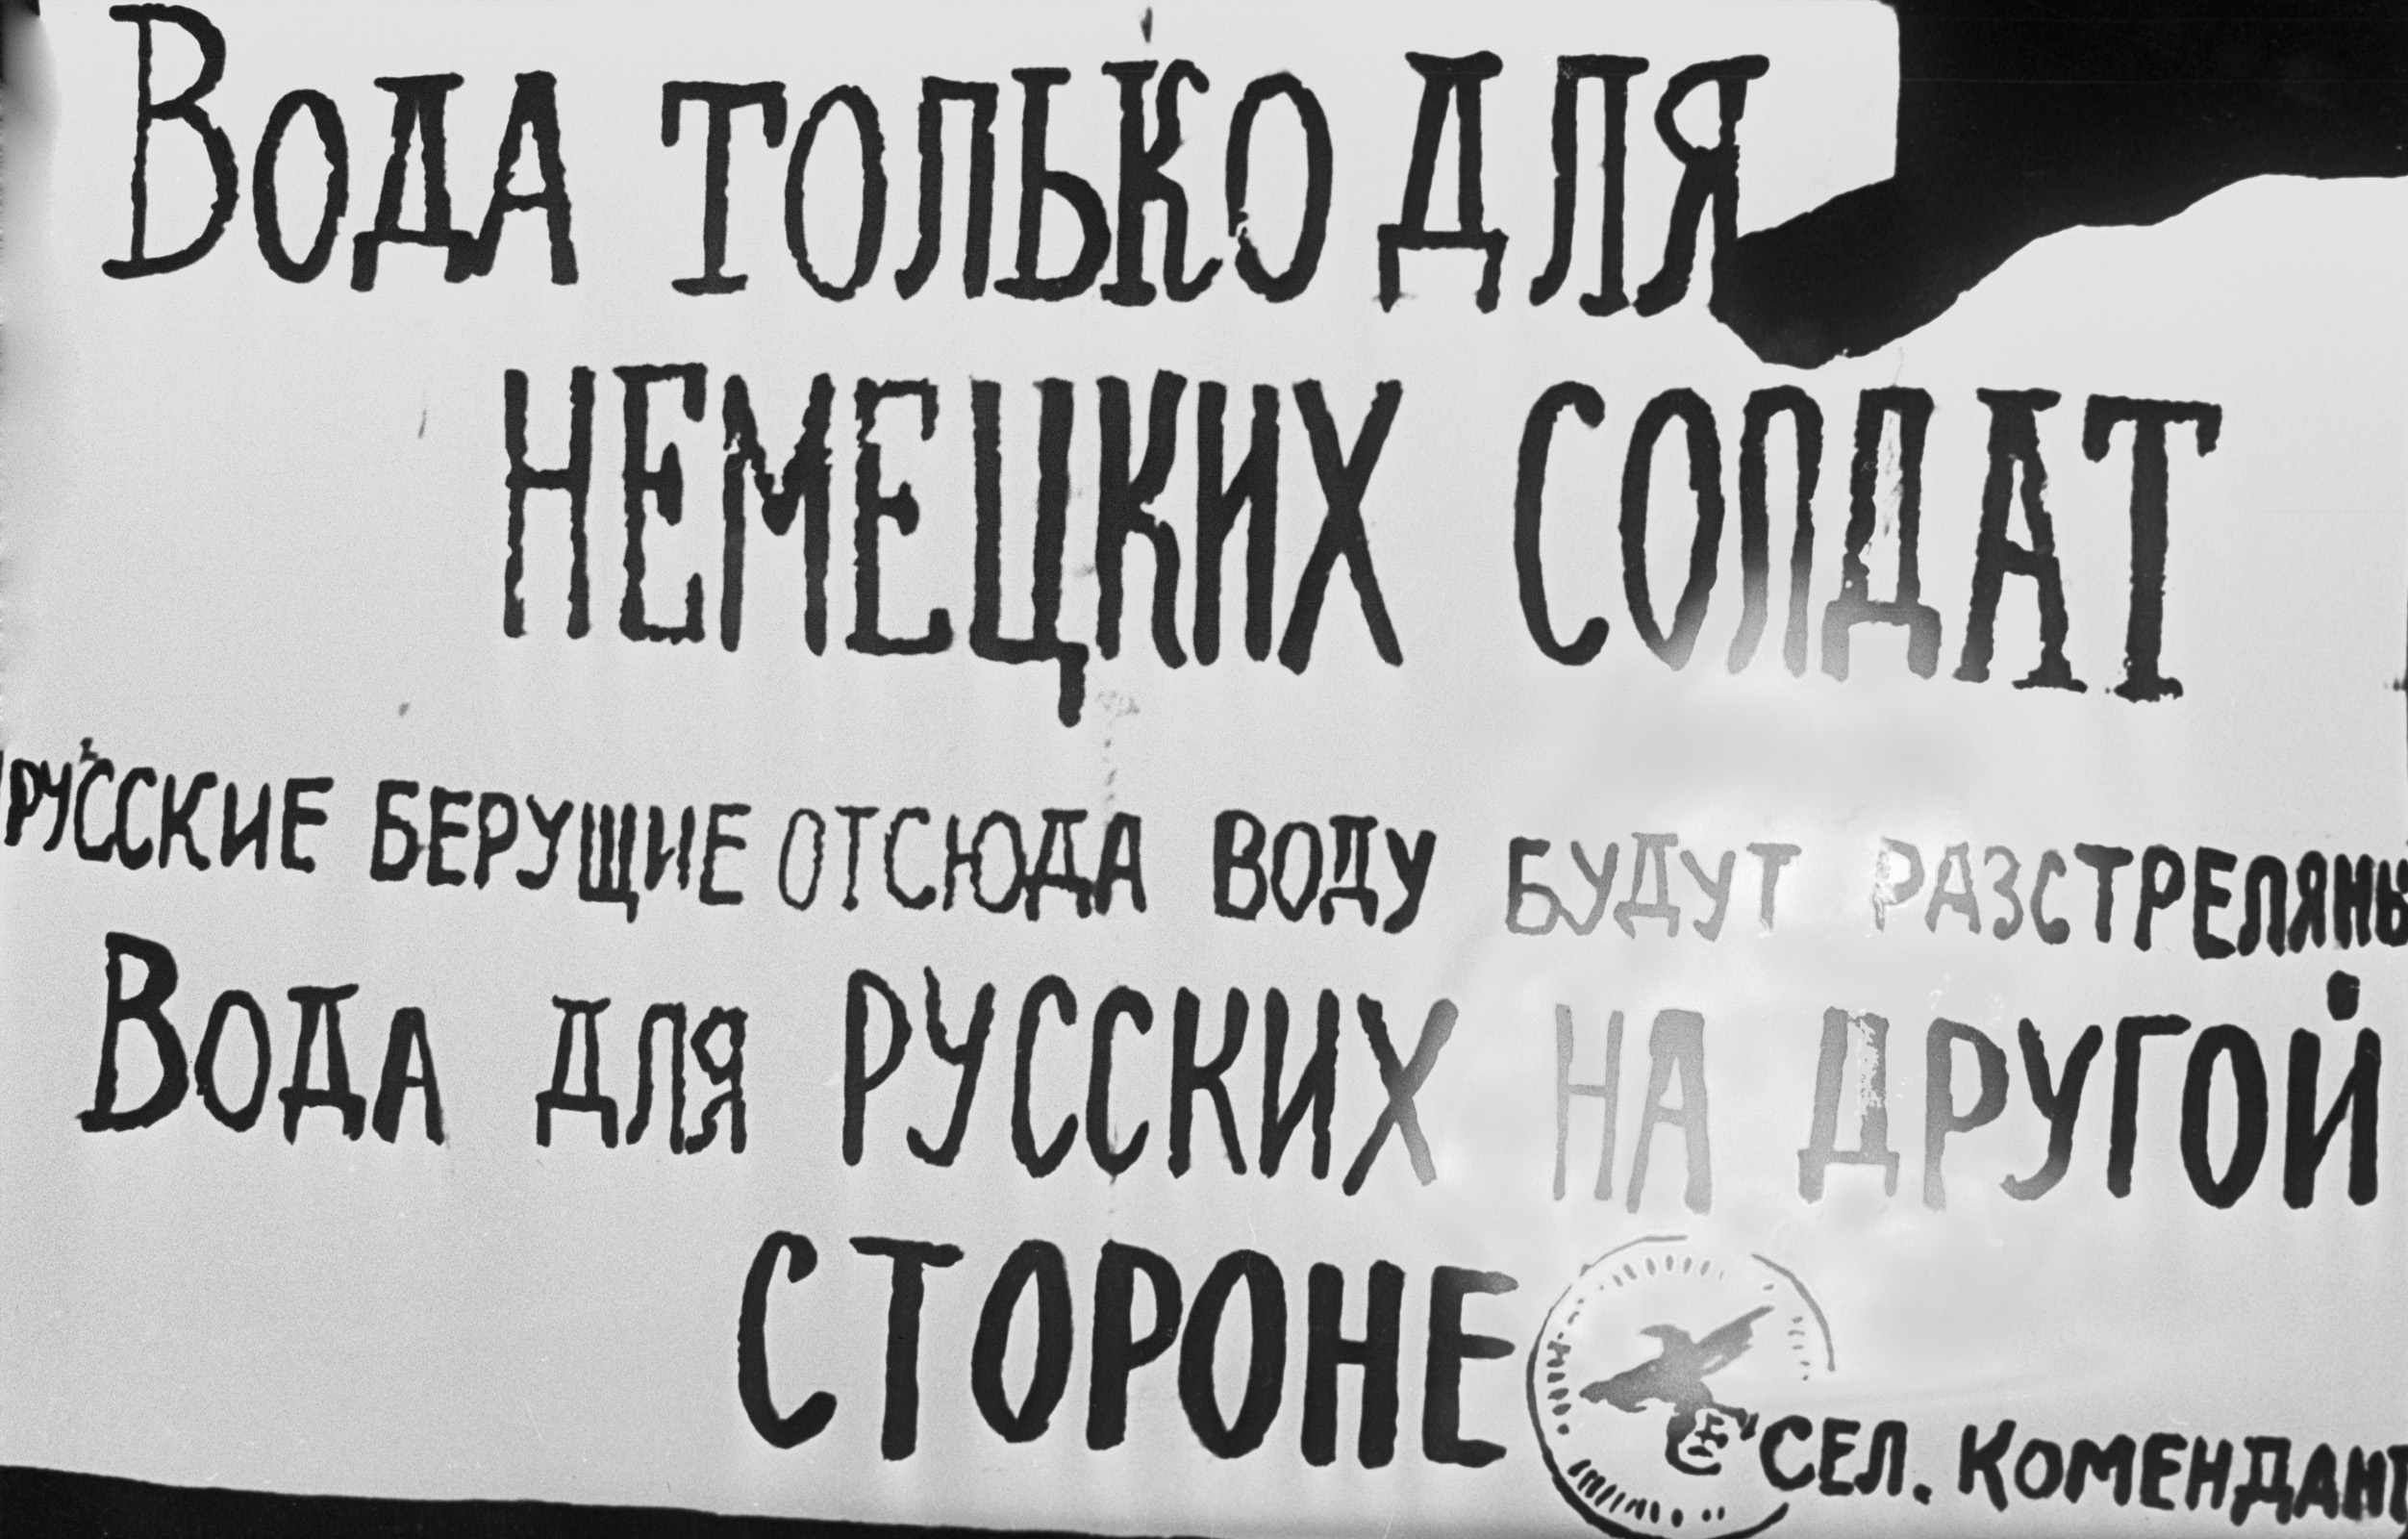 Вода только для
немецких солдат
Русские берущие отсюда воду будут разстреляны
Вода для русских на другой
стороне
Сел. Комендант